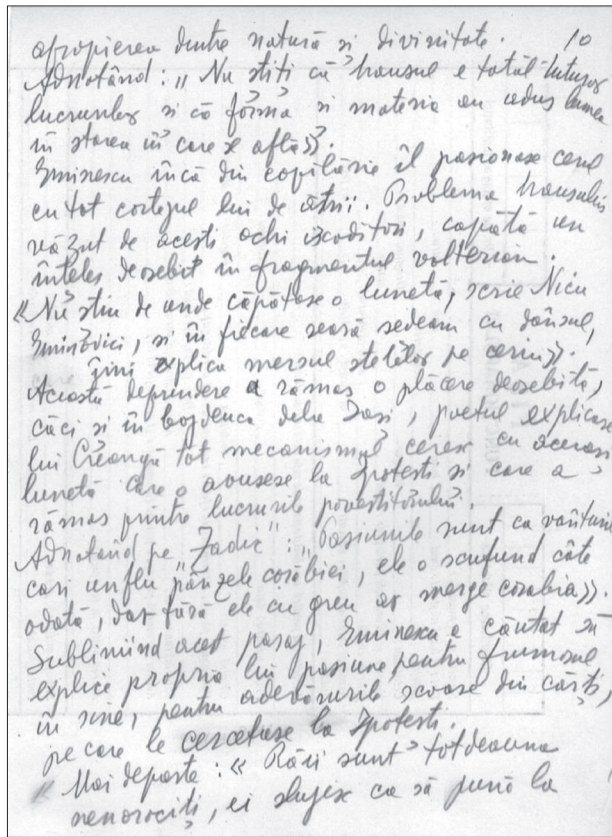 10
apropierea dintre natură si divinitate.
Adnotând: „Nu stiti că haosul e tatăl tuturor
lucrurilor si că forma si materia au adus lumea
în starea în care se află».
Eminescu încă din copilărie îl pasionase cerul
cu tot cortegiul lui de astrii. Problema haosului
văzut de acesti ochi iscoditori, capătă un
înteles deosebit în fragmentul volterian.
«Nu stiu de unde căpătase o lunetă, scrie Nicu
Eminovici, si în fiecare seară sedeam cu dânsul,
îmi explica mersul stelelor pe ceriu».
Această deprindere a rămas o plăcere deosebită,
căci si în bojdeuca dela Iasi, poetul explicase
lui Creangă tot mecanismul ceresc cu aceeasi
lunetă care o avusese la Ipotesti si care a
rămas printre lucrurile povestitorului.
Adnotând pe „Zadic”: „Pasiunile sunt ca vânturile
cari unflu pânzele corăbiei, ele o scufund câte
odată, dar fără ele cu greu ar merge corabia».
Subliniind acest pasaj, Eminescu a căutat să
explice propria lui pasiune pentru frumosul
în sine, pentru adevărurile scoase din cărți,
pe care le cercetase la Ipotesti.
Mai departe: « Răii sunt totdeauna
nenorociți, ei slujesc ca să pună la